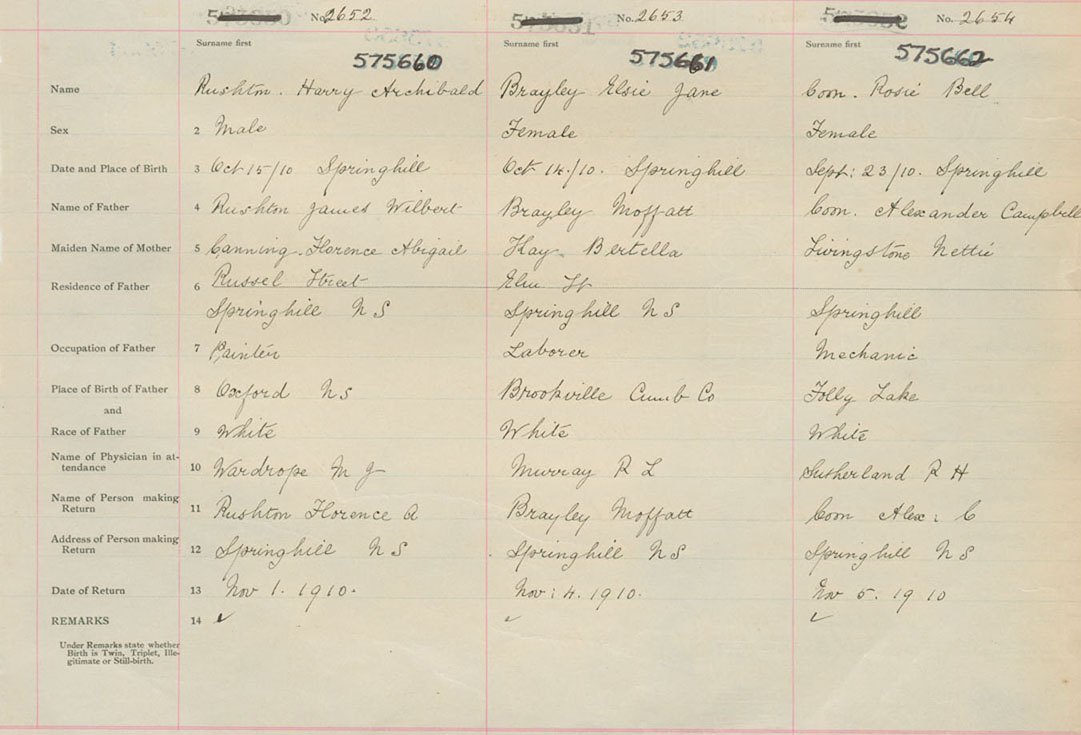 No. 2652 No. 2653 No. 2654
Surname first Surname first Surname first
575660 575661 575662
Name Rushton. Harry Archibald Brayley Elsie Jane Coon. Rosie Bell
Sex 2 Male Female Female
Date and Place of Birth 3 Oct 15/10 Springhill Oct 14/10. Springhill Sept: 23/10. Springhill
Name of Father 4 Rushton James Wilbert Brayley Moffatt Coon. Alexander Campbell
Maiden Name of Mother 5 Canning. Florence Abigail Hay. Bertella Livingstone Nettie
Residence of Father 6 Russel Street Elm St
Springhill N S Springhill N S Springhill
Occupation of Father 7 Painter Laborer Mechanic
Place of Birth of Father 8 Oxford N S Brookville Cumb Co Folly Lake
and
Race of Father 9 White White White
Name of Physician in at-
tendance 10 Wardrope M J Murray R L Sutherland R H
Name of Person making
Return 11 Rushton Florence A Brayley Moffatt Coon Alex: C
Address of Person making
Return 12 Springhill N S Springhill N S Springhill N S
Date of Return 13 Nov 1. 1910. Nov: 4. 1910. Nov 5. 1910
REMARKS 14 ✓ ✓ ✓
Under Remarks state whether
Birth is Twin, Triplet, Ille-
gitimate or Still-birth.